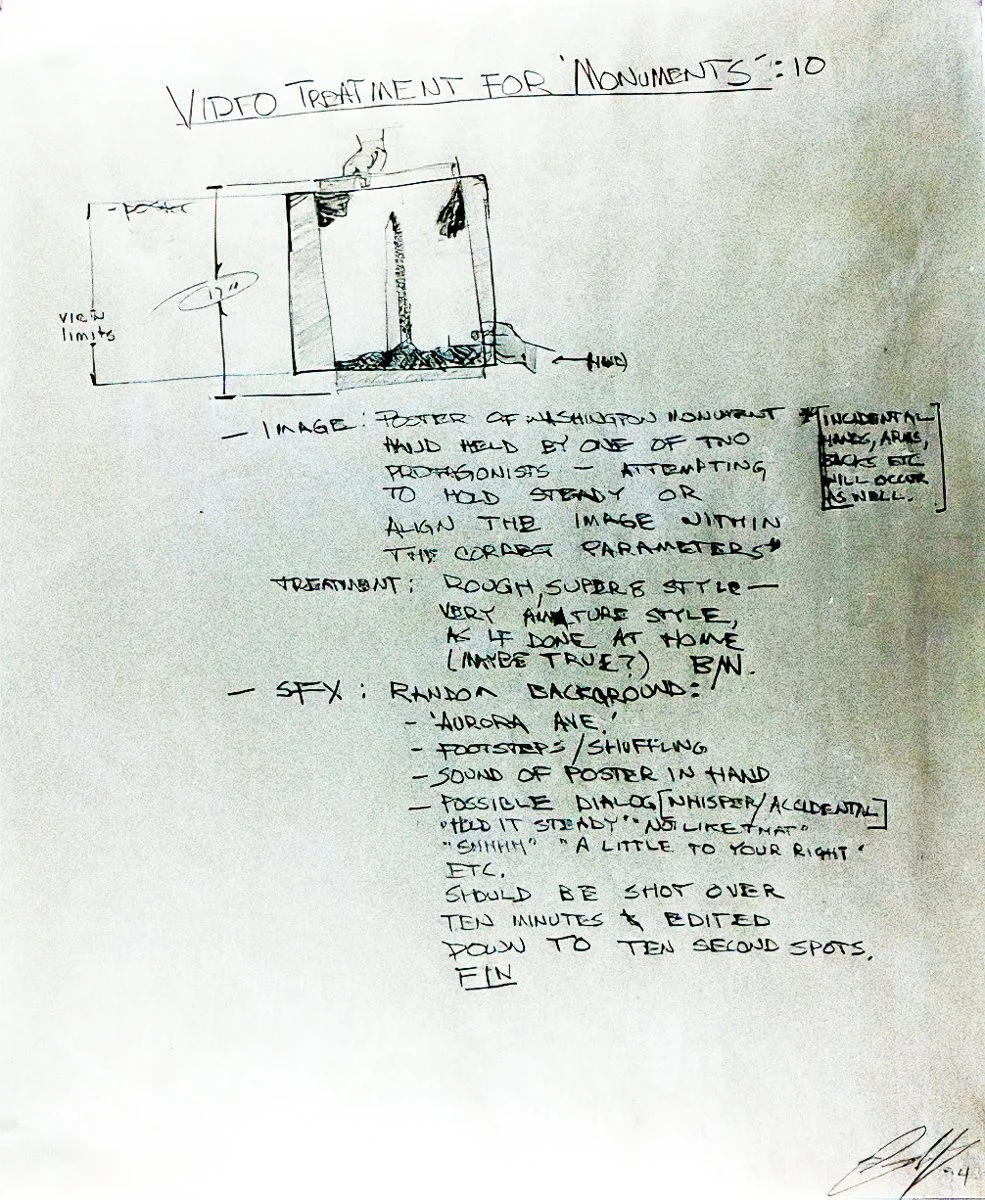 VIDEO TREATMENT FOR 'MONUMENTS' :10
- poster
17"
view
limits
- IMAGE: POSTER OF WASHINGTON MONUMENT
HAND HELD BY ONE OF TWO
PROTAGONISTS - ATTEMPTING
TO HOLD STEADY OR
ALIGN THE IMAGE WITHIN
THE CORRECT PARAMETERS*
*[INCIDENTAL
HANDS, ARMS,
BACKS ETC
WILL OCCUR
AS WELL.]
TREATMENT: ROUGH, SUPER 8 STYLE -
VERY AMATURE STYLE,
AS IF DONE AT HOME
(MAYBE TRUE?) B/W.
- SFX: RANDOM BACKGROUND:
- 'AURORA AVE.'
- FOOTSTEPS/SHUFFLING
- SOUND OF POSTER IN HAND
- POSSIBLE DIALOG [WHISPER/ACCIDENTAL]
"HOLD IT STEADY" "NOT LIKE THAT"
"SHHHH" "A LITTLE TO YOUR RIGHT"
ETC.
SHOULD BE SHOT OVER
TEN MINUTES & EDITED
DOWN TO TEN SECOND SPOTS.
FIN
94